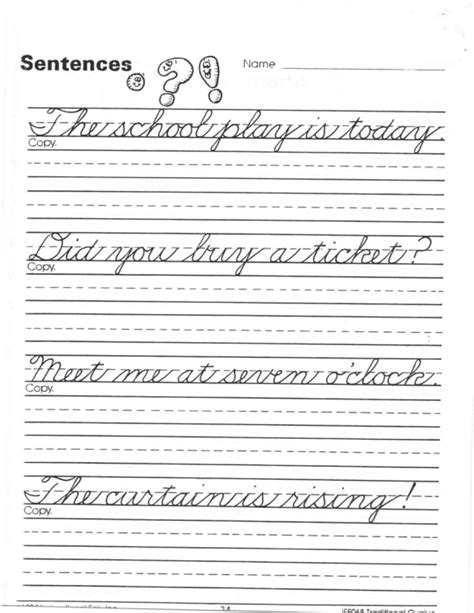 Sentences
Name
The school play is today.
Copy.
Did you buy a ticket?
Copy.
Meet me at seven o'clock.
Copy.
The curtain is rising!
Copy.
24